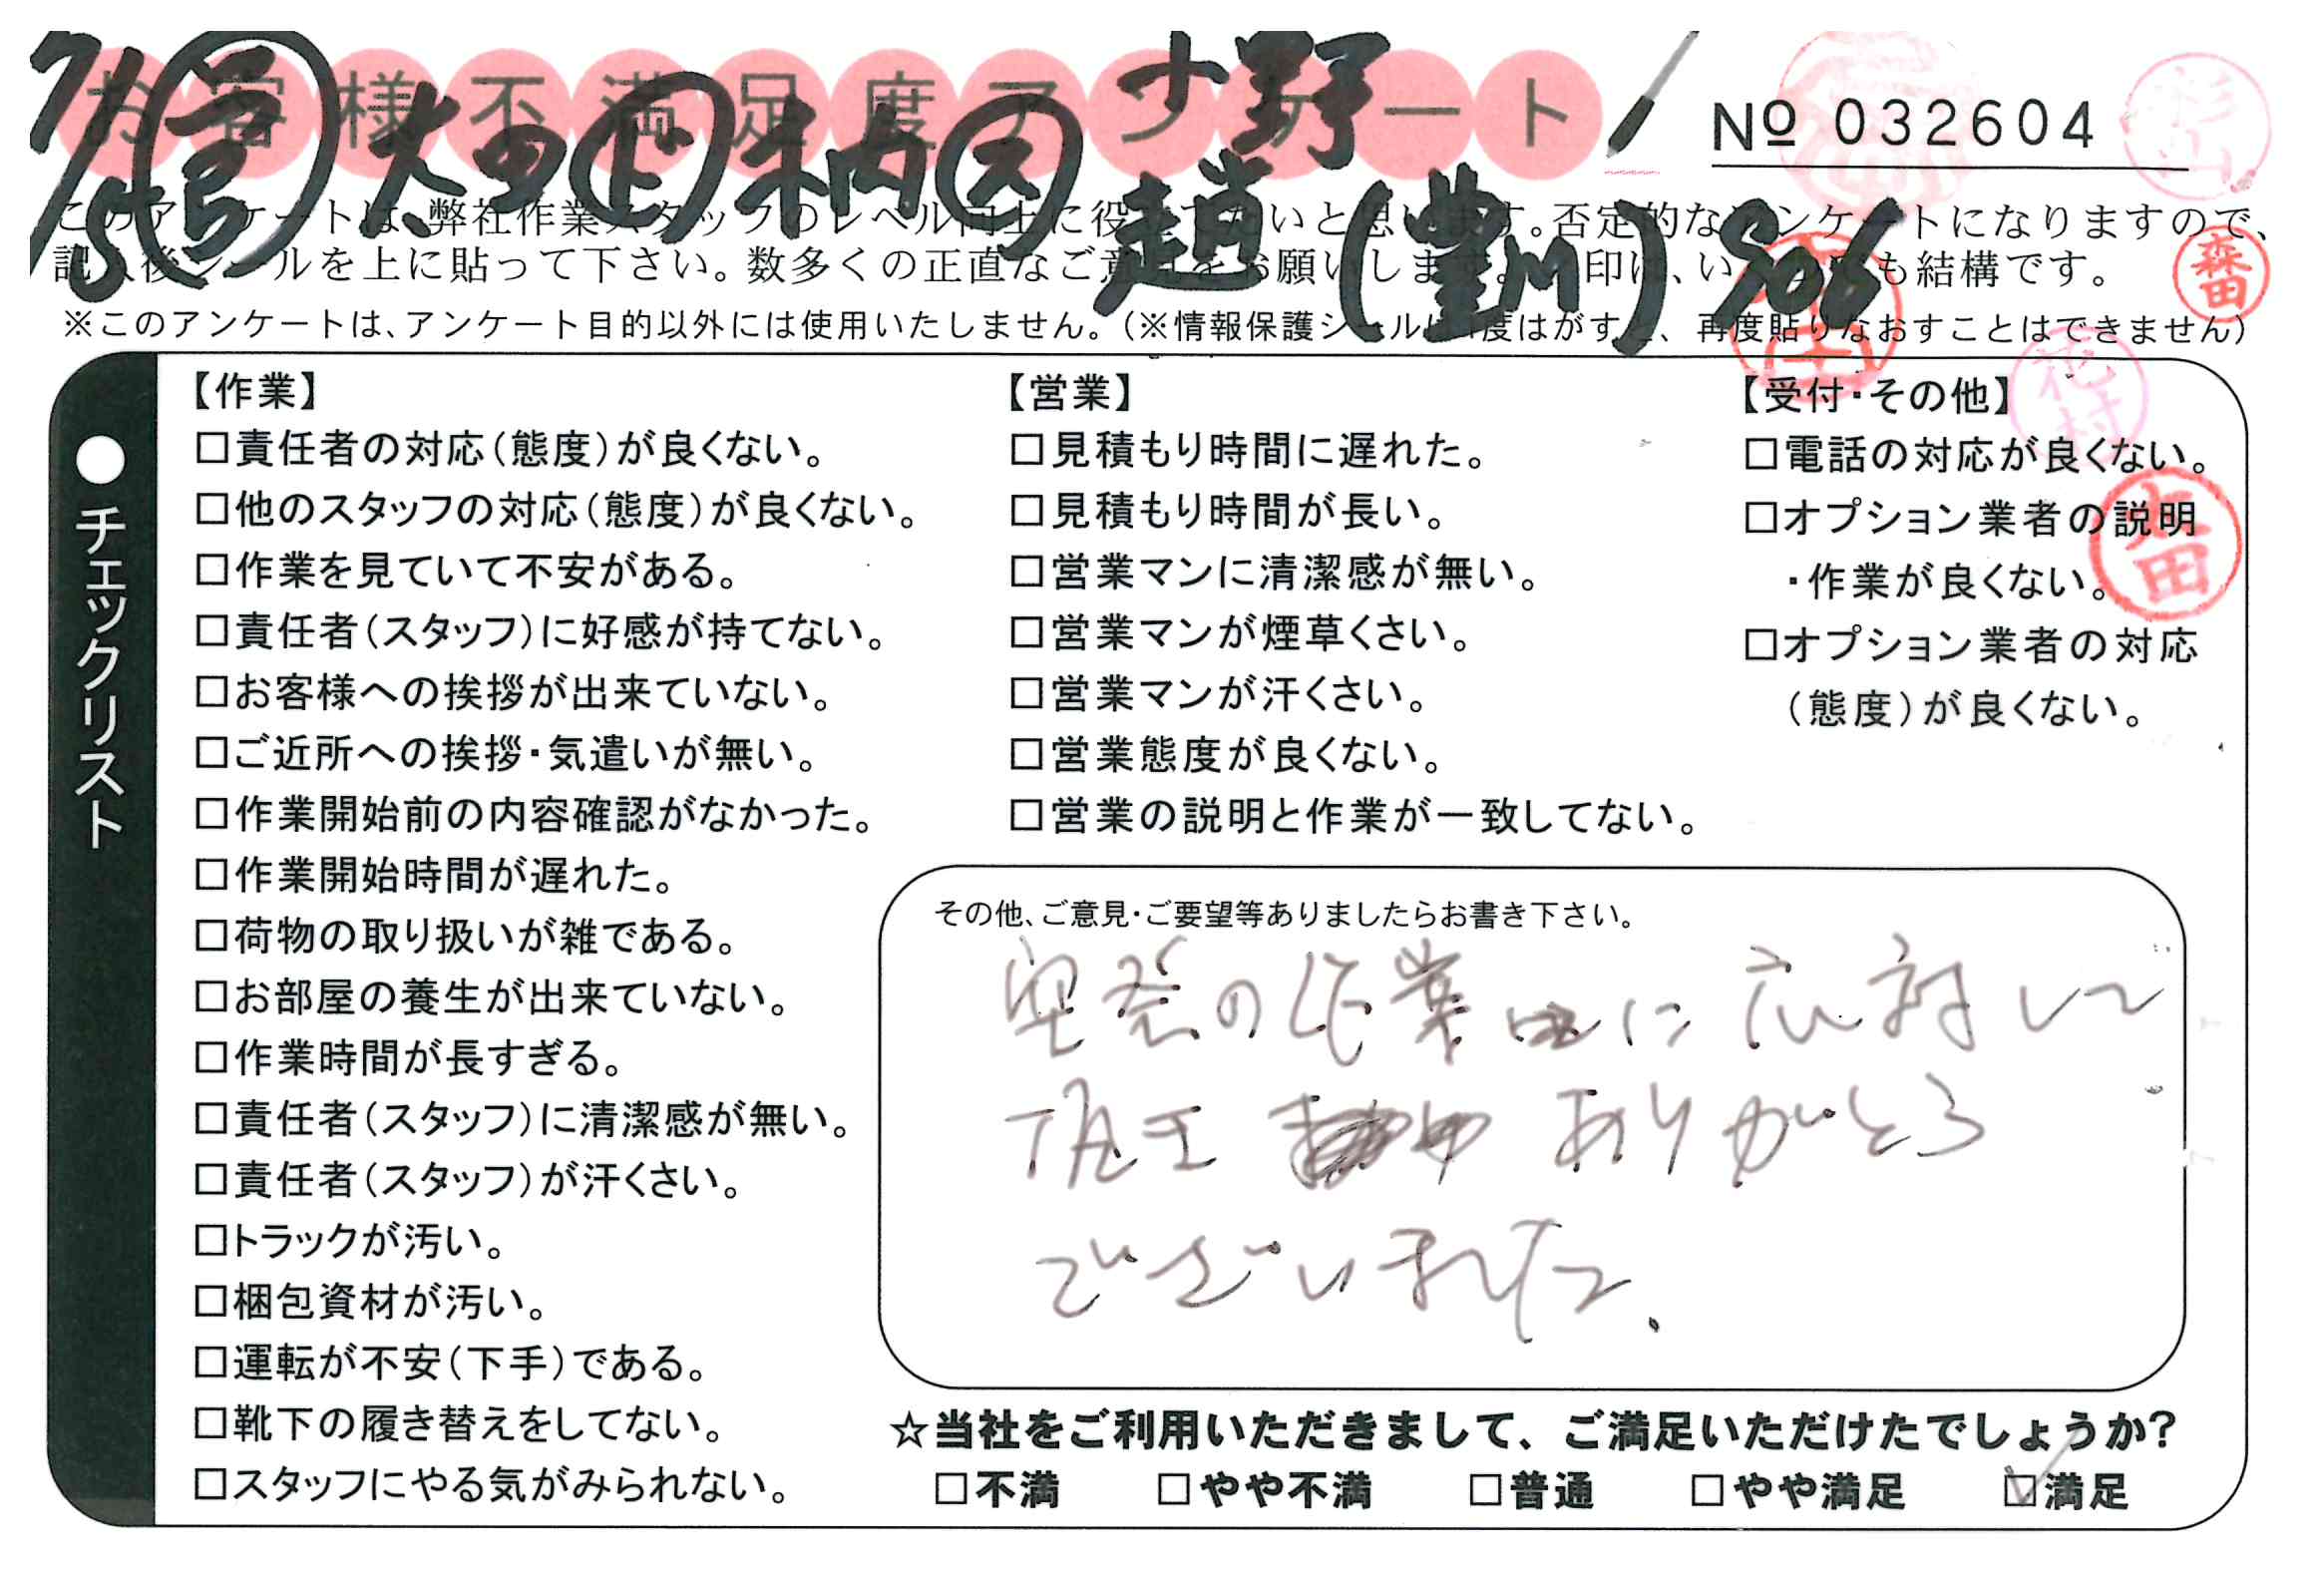 お客様不満足度アンケート
№ 032604
7/15 太田 上 柄 小野
趙 (豊川) S06
このアンケートは、弊社作業スタッフのレベル向上に役立てたいと思います。否定的なアンケートになりますので、
記入後シールを上に貼って下さい。数多くの正直なご意見をお願いします。 印は、いくつでも結構です。
※このアンケートは、アンケート目的以外には使用いたしません。(※情報保護シールは1度はがすと、再度貼りなおすことはできません)
杉山
森田
花村
太田
●チェックリスト
【作業】
□責任者の対応(態度)が良くない。
□他のスタッフの対応(態度)が良くない。
□作業を見ていて不安がある。
□責任者(スタッフ)に好感が持てない。
□お客様への挨拶が出来ていない。
□ご近所への挨拶・気遣いが無い。
□作業開始前の内容確認がなかった。
□作業開始時間が遅れた。
□荷物の取り扱いが雑である。
□お部屋の養生が出来ていない。
□作業時間が長すぎる。
□責任者(スタッフ)に清潔感が無い。
□責任者(スタッフ)が汗くさい。
□トラックが汚い。
□梱包資材が汚い。
□運転が不安(下手)である。
□靴下の履き替えをしてない。
□スタッフにやる気がみられない。
【営業】
□見積もり時間に遅れた。
□見積もり時間が長い。
□営業マンに清潔感が無い。
□営業マンが煙草くさい。
□営業マンが汗くさい。
□営業態度が良くない。
□営業の説明と作業が一致してない。
【受付・その他】
□電話の対応が良くない。
□オプション業者の説明
・作業が良くない。
□オプション業者の対応
(態度)が良くない。
その他、ご意見・ご要望等ありましたらお書き下さい。
突発の作業に応対して
頂き ありがとう
ございました.
☆当社をご利用いただきまして、ご満足いただけたでしょうか?
□不満 □やや不満 □普通 □やや満足 ☑満足